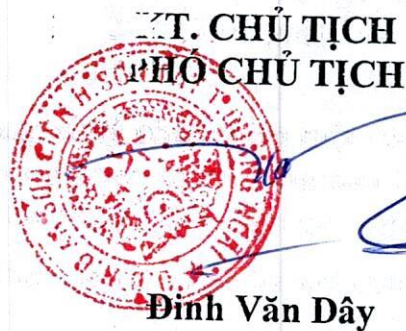 KT. CHỦ TỊCH
PHÓ CHỦ TỊCH
Đinh Văn Dây